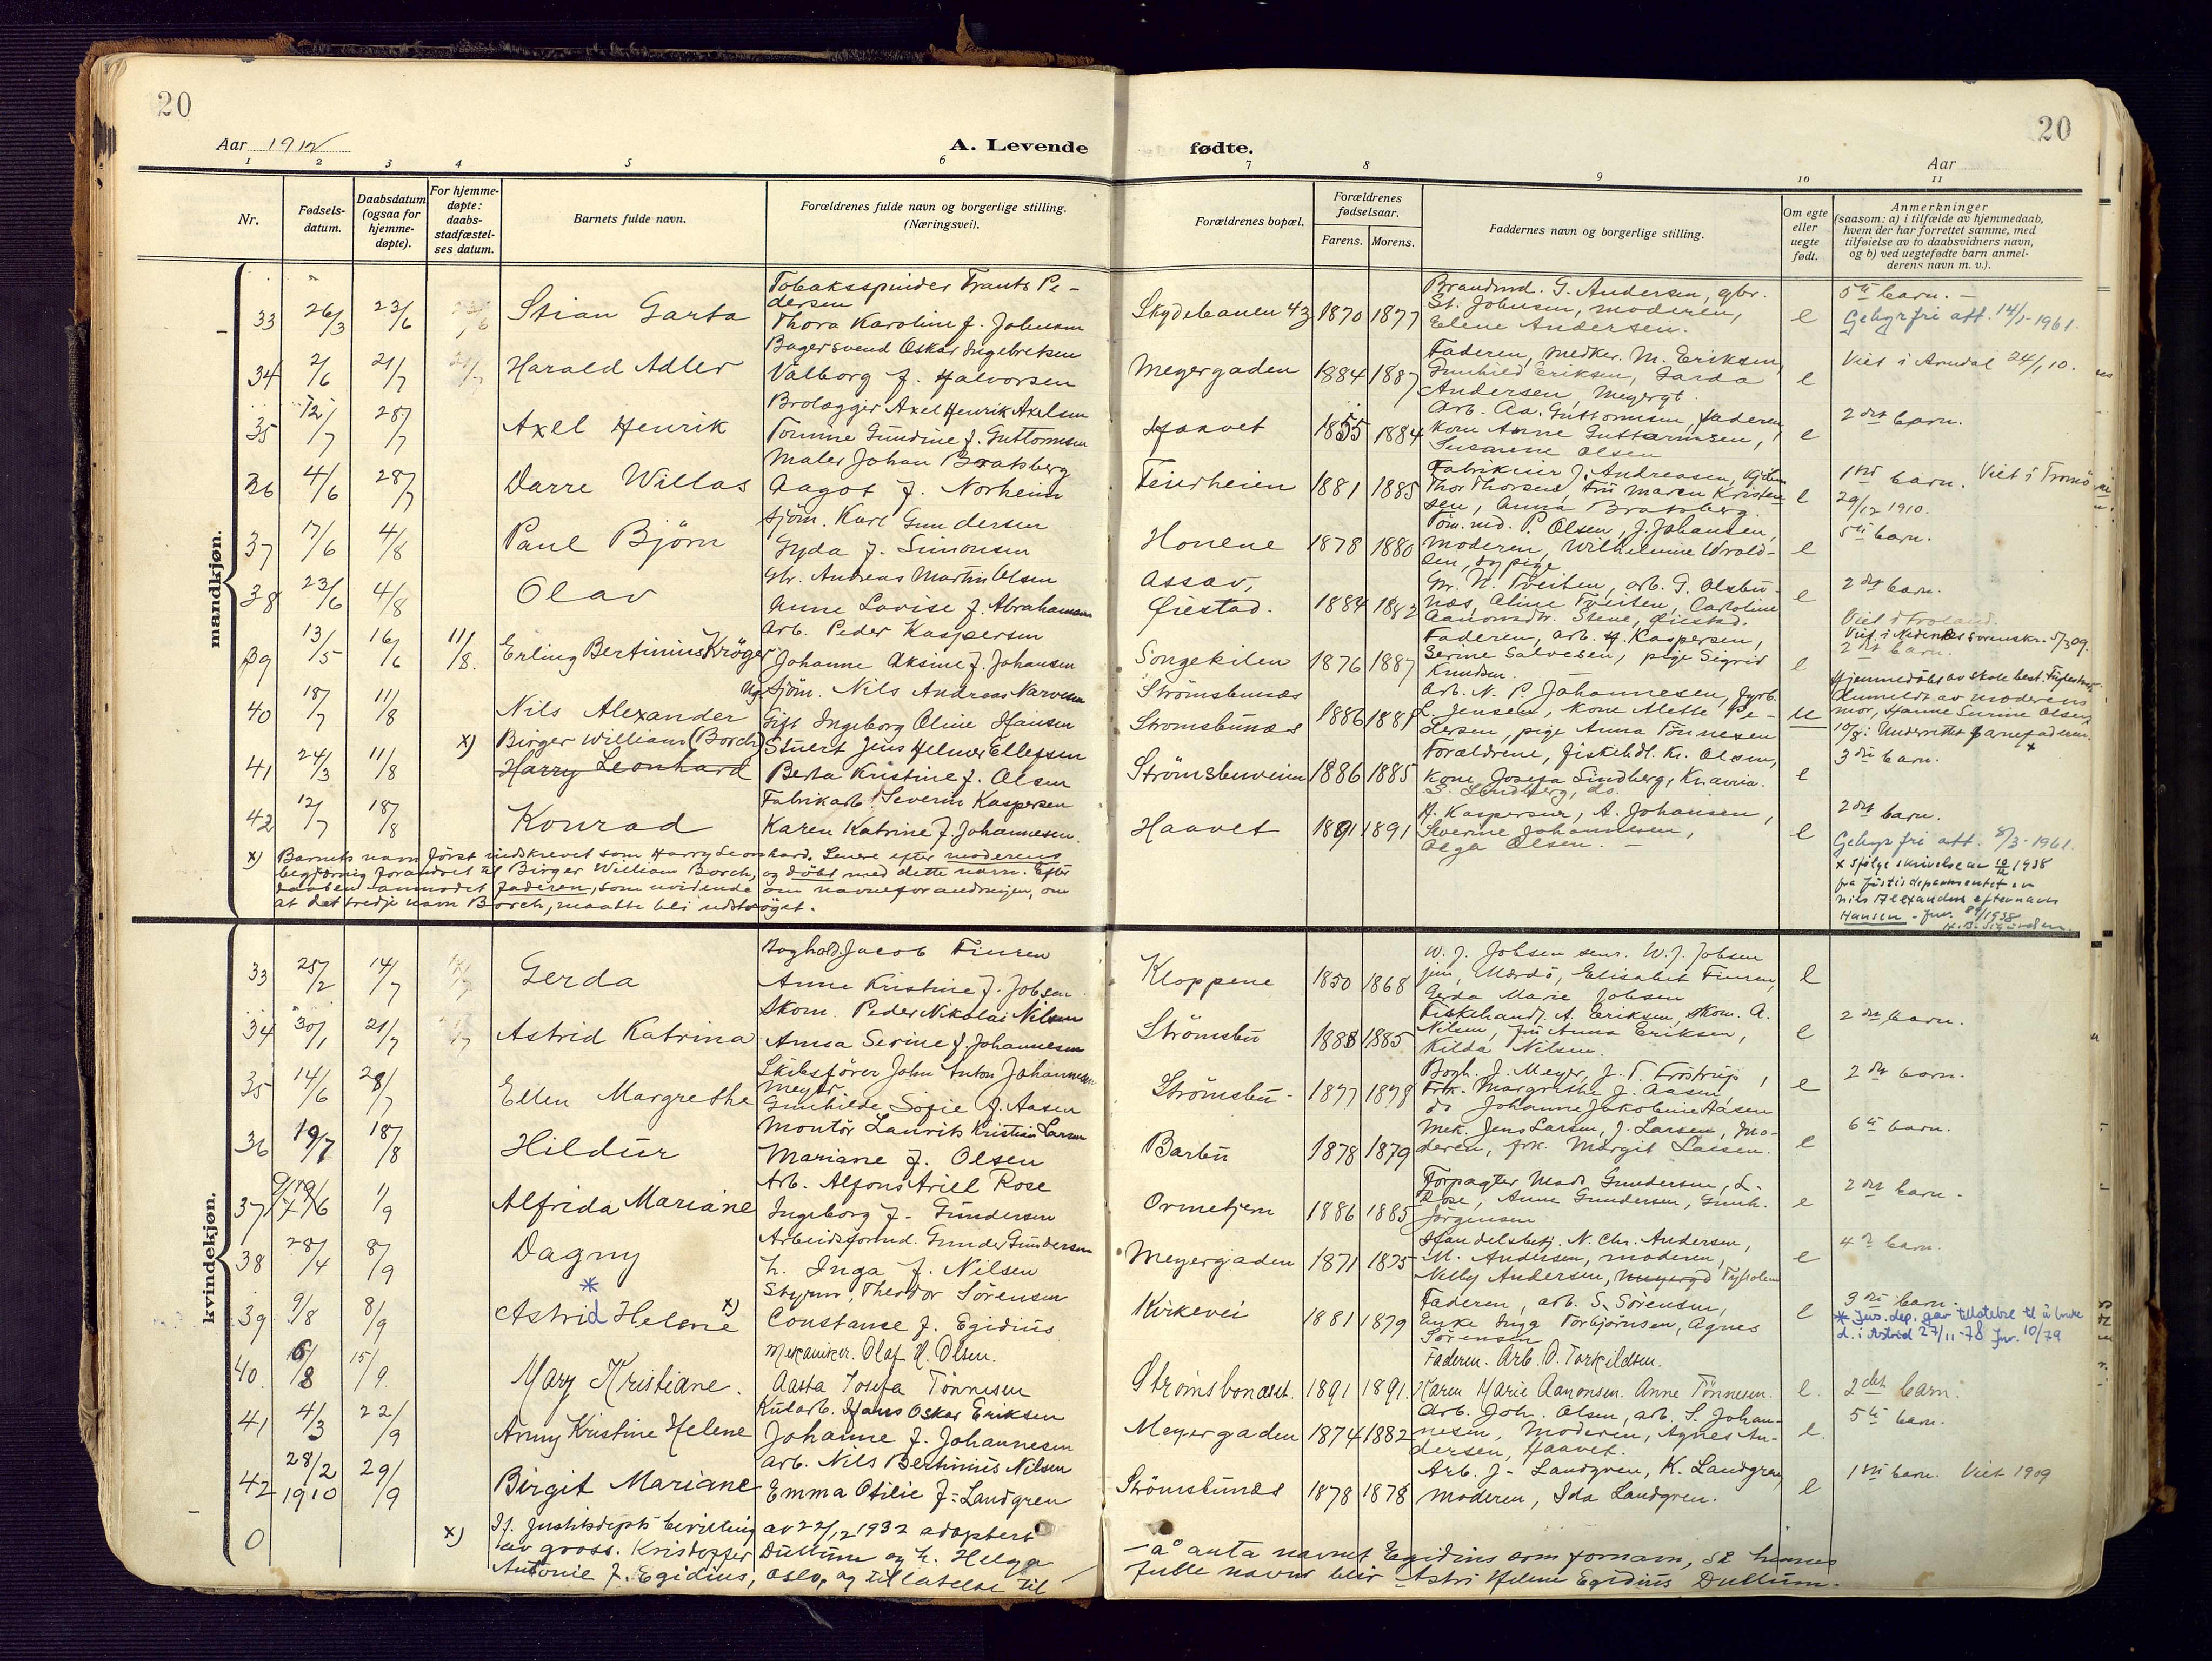 20
20
Aar 1912
A. Levende
fødte.
Aar
1 2 3 4 5 6 7 8 9 10 11
Nr.
Fødsels-
datum.
Daabsdatum
(ogsaa for
hjemme-
døpte).
For hjemme-
døpte:
daabs-
stadfæstel-
ses datum.
Barnets fulde navn.
Forældrenes fulde navn og borgerlige stilling.
(Næringsvei).
Forældrenes bopæl.
Forældrenes
fødselsaar.
Farens. Morens.
Faddernes navn og borgerlige stilling.
Om egte
eller
uegte
født.
Anmerkninger
(saasom: a) i tilfælde av hjemmedaab,
hvem der har forrettet samme, med
tilføielse av to daabsvidners navn,
og b) ved uegtefødte barn anmel-
derens navn m. v.).
mandkjøn.
33 26/3 23/6 Stian Garta
Tobaksspinder Frants Pe-
dersen
Thora Karoline f. Johnsen
Skydebanen 43 1870 1877
Brandmd. G. Andersen, gbr.
St. Johnsen, moderen,
Elene Andersen.
e
5te barn. -
Gebyrfri att. 14/1-1961.
34 2/6 21/7 Harald Adler
Bagersvend Oskar Ingebretsen
Valborg f. Halvorsen
Meyergaden 1884 1887
Faderen, medker. M. Eriksen,
Gunhild Eriksen, Garda
Andersen, Meyergt.
e
Viet i Arendal 24/1 10.
35 12/7 28/7 Axel Henrik
Brolægger Axel Henrik Axelsen
Tomine Gundine f. Guttormsen
Haavet 1855 1884
Arb. Aa. Guttormsen, faderen,
kone Anne Guttormsen,
Susanne Olsen
e
2det barn.
36 4/6 28/7 Darre Willas
Maler Johan Bratsberg
Aagot f. Norheim
Feierheien 1881 1885
Fabrikeier J. Andreasen,
Thor Thorsen, Fru Maren Kristen-
sen, Anna Bratsberg.
e
1ste barn. Viet i Tromö
29/12 1910.
37 17/6 4/8 Paul Björn
Sjöm. Karl Gundersen
Gyda f. Simonsen
Honene 1878 1880
Töm.md. P. Olsen, J. Johansen,
moderen, Wilhelmine Wrold-
sen, sypige
e
5te barn.
38 23/6 4/8 Olav
Gbr. Andreas Martin Olsen
Anne Lovise f. Abrahamsen
Assav,
Øiestad. 1884 1882
Gbr. N. Treiten, arb. G. Olsbu-
næs, Aline Treiten, Caroline
Aanonsdtr. Stene, Øiestad.
e
2det barn.
Viet i Froland.
39 13/5 16/6 11/8. Erling Bertinius Kröger
Arb. Peder Kaspersen
Johanne Aksine f. Johansen
Songekilen 1876 1887
Faderen, arb. H. Kaspersen,
Serine Salvesen, pige Sigrid
Knudsen.
e
Viet i Nedenes Sorenskr. 5/3 09.
2det barn.
Hjemmedöbt av skolebest.
40 18/7 11/8 Nils Alexander
Ug. Sjöm. Nils Andreas Narvesen
Gift Ingeborg Oline Hansen
Strömsbunæs
Strömsbunæs 1886 1881
Arb. N. P. Johannesen, fyrb.
L. Jensen, kone Alette Pe-
dersen, pige Anna Tönnesen
u
Anmeldt av moderens
mor, Hanne Surine Olsen
10/8: Underrettet barnefaderen.
x
41 24/3 11/8 x) Birger William (Borch)
Harry Leonhard
Stuert Jens Helmer Ellefsen
Berta Kristine f. Olsen
Strömsbuveien 1886 1885
Forældrene, fiskehdl. Kr. Olsen,
kone Josefa Lindberg, Knavia.
S. Lindberg, do.
e
3die barn.
42 12/7 18/8 Konrad
Fabrikarb. Severin Kaspersen
Karen Katrine f. Johannesen.
Haavet 1891 1891
H. Kaspersen, A. Johansen,
Severine Johannesen,
Olga Olsen. -
e
2det barn.
Gebyrfri att. 8/3-1961.
x Ifölge skrivelse av 1938
fra Justisdepartementet er
Nils Alexanders efternavn
Hansen - Jnr. 89/1938
x) Barnets navn först indskrevet som Harry Leonhard. Senere efter moderens
begjæring forandret til Birger William Borch, og döbt med dette navn. Efter
daaben anmodet faderen, som uvidende om navneforandringen, om
at det tredje navn Borch, maatte bli udströget.
kvindekjøn.
33 25/2 14/7 Gerda
Boghold Jacob Finren
Anne Kristine f. Jobsen
Kloppene 1850 1868
W. J. Jobsen senr. W. J. Jobsen
jun, Mærdö, Elisabet Finren,
Gerda Marie Jobsen
e
34 30/1 21/7 Astrid Katrina
Skom. Peder Nikolai Nilsen
Anna Serine f. Johannesen
Strömsbu 1888 1885
Fiskehandl. A. Eriksen, skom. A.
Nilsen, fru Anna Eriksen,
Kilda Nilsen.
e
2det barn.
35 14/6 28/7 Ellen Margrethe
Skibsförer John Anton Johannesen
Meyer
Gunhilde Sofie f. Aasen
Strömsbu - 1877 1878
Bogh. J. Meyer, J. T. Fröstrup,
Frk. Margrethe J. Aasen
do Johanne Jakobine Aasen
e
2det barn.
36 19/7 18/8 Hildur
Montör Laurits Kristian Larsen
Mariane f. Olsen
Barbu 1878 1879
Mek. Jens Larsen, J. Larsen, mo-
deren, frk. Margit Larsen.
e
6te barn.
37 1/9 Alfrida Mariane
Arb. Alfons Ariel Rose
Ingeborg f. Gundersen
Ormetjern 1886 1885
Forpagter Mads Gundersen, L.
Rose, Anne Gundersen, Gunh.
Jörgensen
e
2det barn -
38 28/4 8/9 Dagny
Arbeidsformd. Gunder Gundersen
h. Inga f. Nilsen
Meyergaden 1871 1875
Handelsbetj. N. Chr. Andersen,
M. Andersen, moderen,
Nelly Andersen, Tyholm
e
4de barn.
39 9/8 8/9 * Astrid Helene x)
Styrm. Theodor Sörensen
Constanse f. Egidius
Kirkevei 1881 1879
Faderen, arb. S. Sörensen,
Enke Inga Torbjörnsen, Agnes
Sörensen
e
3die barn.
* Jus.dep. gav tillatelse til å bruke
d. i Astrid 27/11-78 Jnr. 10/79
40. 6/8 15/9. Mary Kristiane.
Mekaniker. Olaf N. Olsen.
Aasta Josefa Tönnesen
Strömsbonæset. 1891 1891.
Faderen. Arb. O. Torkildsen.
Karen Marie Aanonsen. Anne Tönnesen.
e.
2det barn.
41 4/3 22/9 Anny Kristine Helene
Kularb. Hans Oskar Eriksen
Johanne f. Johannesen
Meyergaden 1874 1882
Arb. Joh. Olsen, arb. S. Johan-
nesen, moderen, Agnes An-
dersen, Haavet.
e.
5te barn.
42 28/2 1910 29/9 Birgit Mariane
Arb. Nils Bertinius Nilsen
Emma Otilie f. Landgren
Strömsbunæs 1878 1878
Arb. J. Landgren, K. Landgren,
moderen, Ida Landgren.
e
1ste barn. Viet 1909
0
x) If. Justitsdepts bevilling av 22/12 1932 adoptert
av gross. Kristoffer Dullum og h. Helga
Antonie f. Egidius, Oslo, og tillatelse til
- å anta navnet Egidius som fornavn, så hennes
fulle navn blir Astri Helene Egidius Dullum.